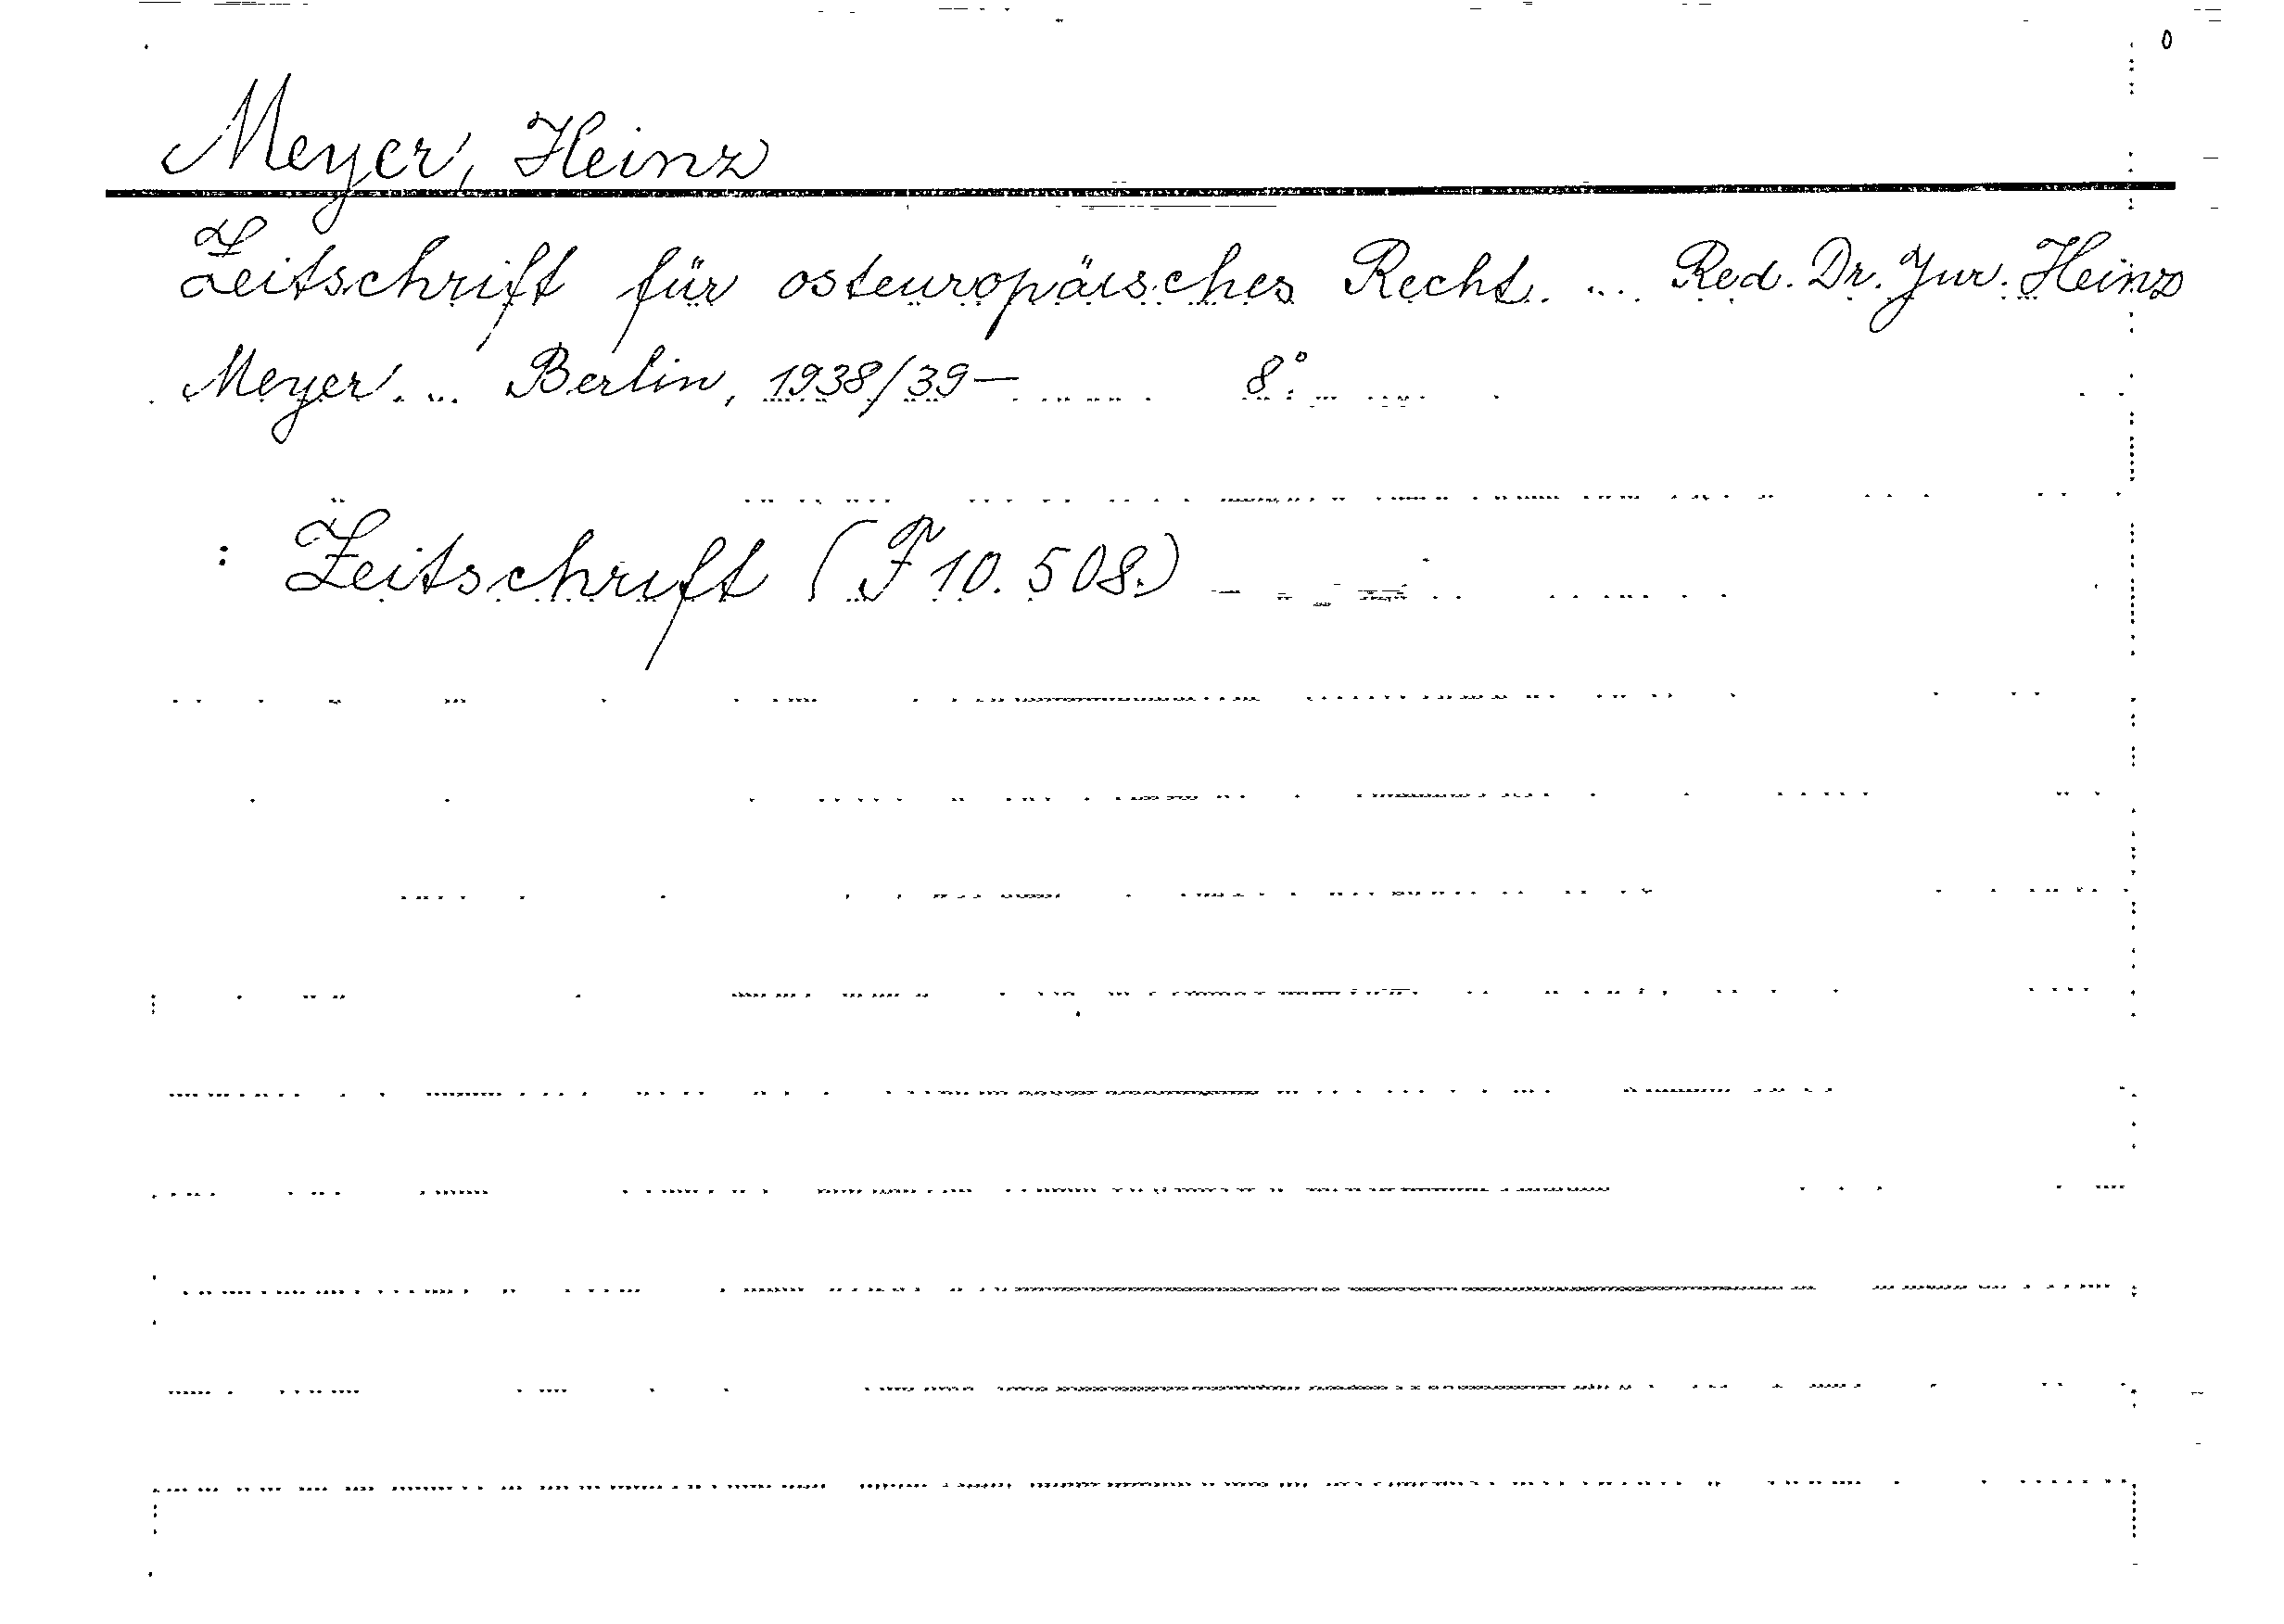 Meyer, Heinz
Zeitschrift für osteuropäisches Recht. ... Red. Dr. Jur. Heinz
Meyer. ... Berlin, 1938/39— 8°.
: Zeitschrift (F 10. 508.)